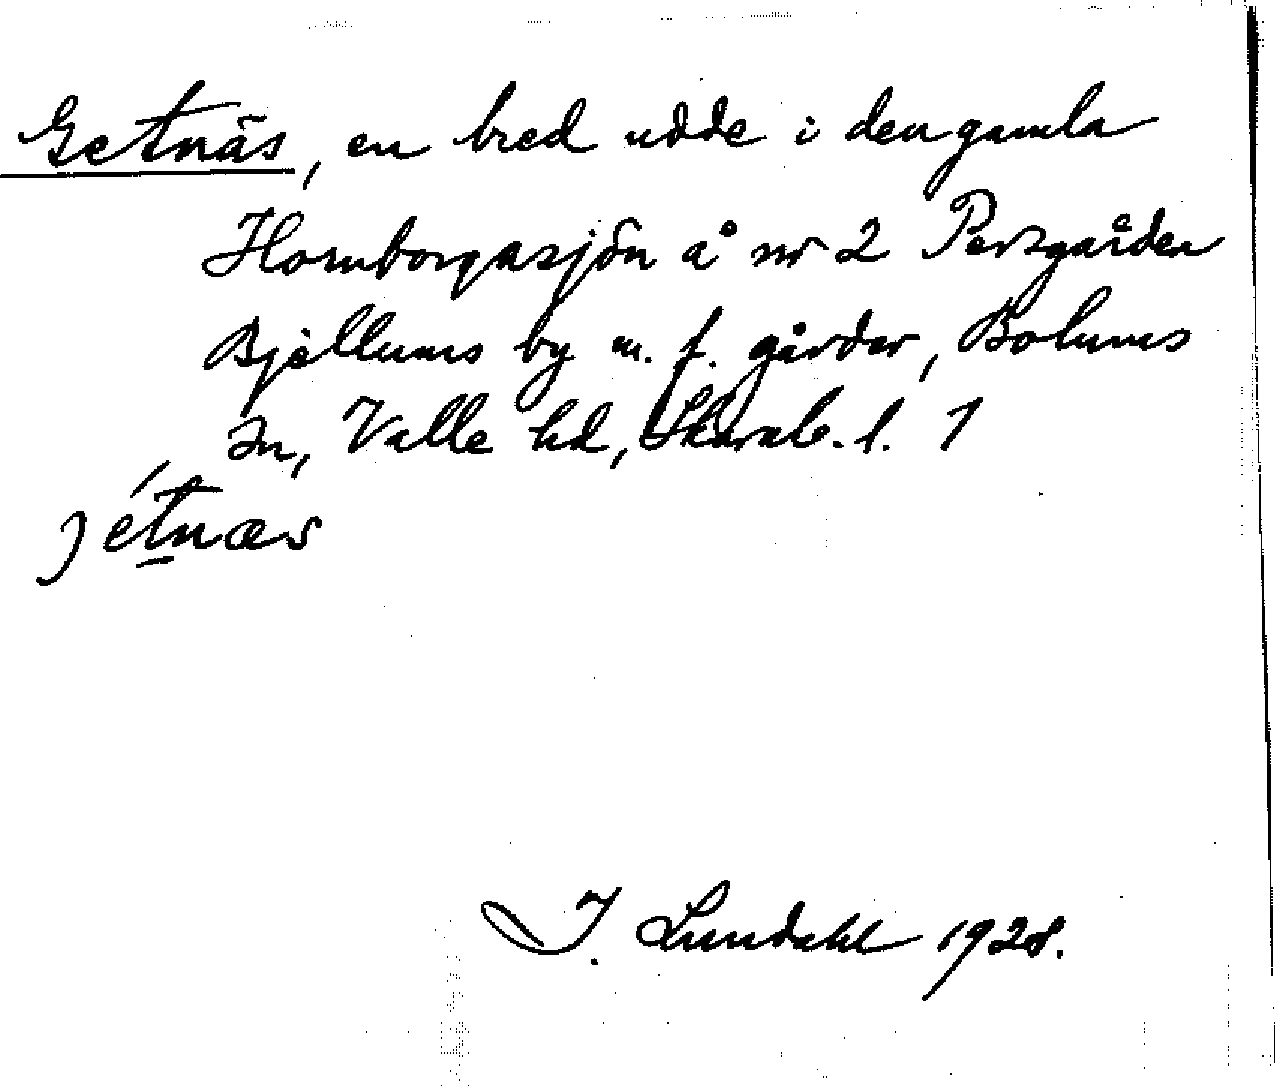 Getnäs, en bred udde i den gamla
Hornborgasjön å nr 2 Persgården
Bjellums by m. f. gårdar, Bolums
sn, Valle hd, Skarab. l. 1
jétnæs
I. Lundahl 1928.